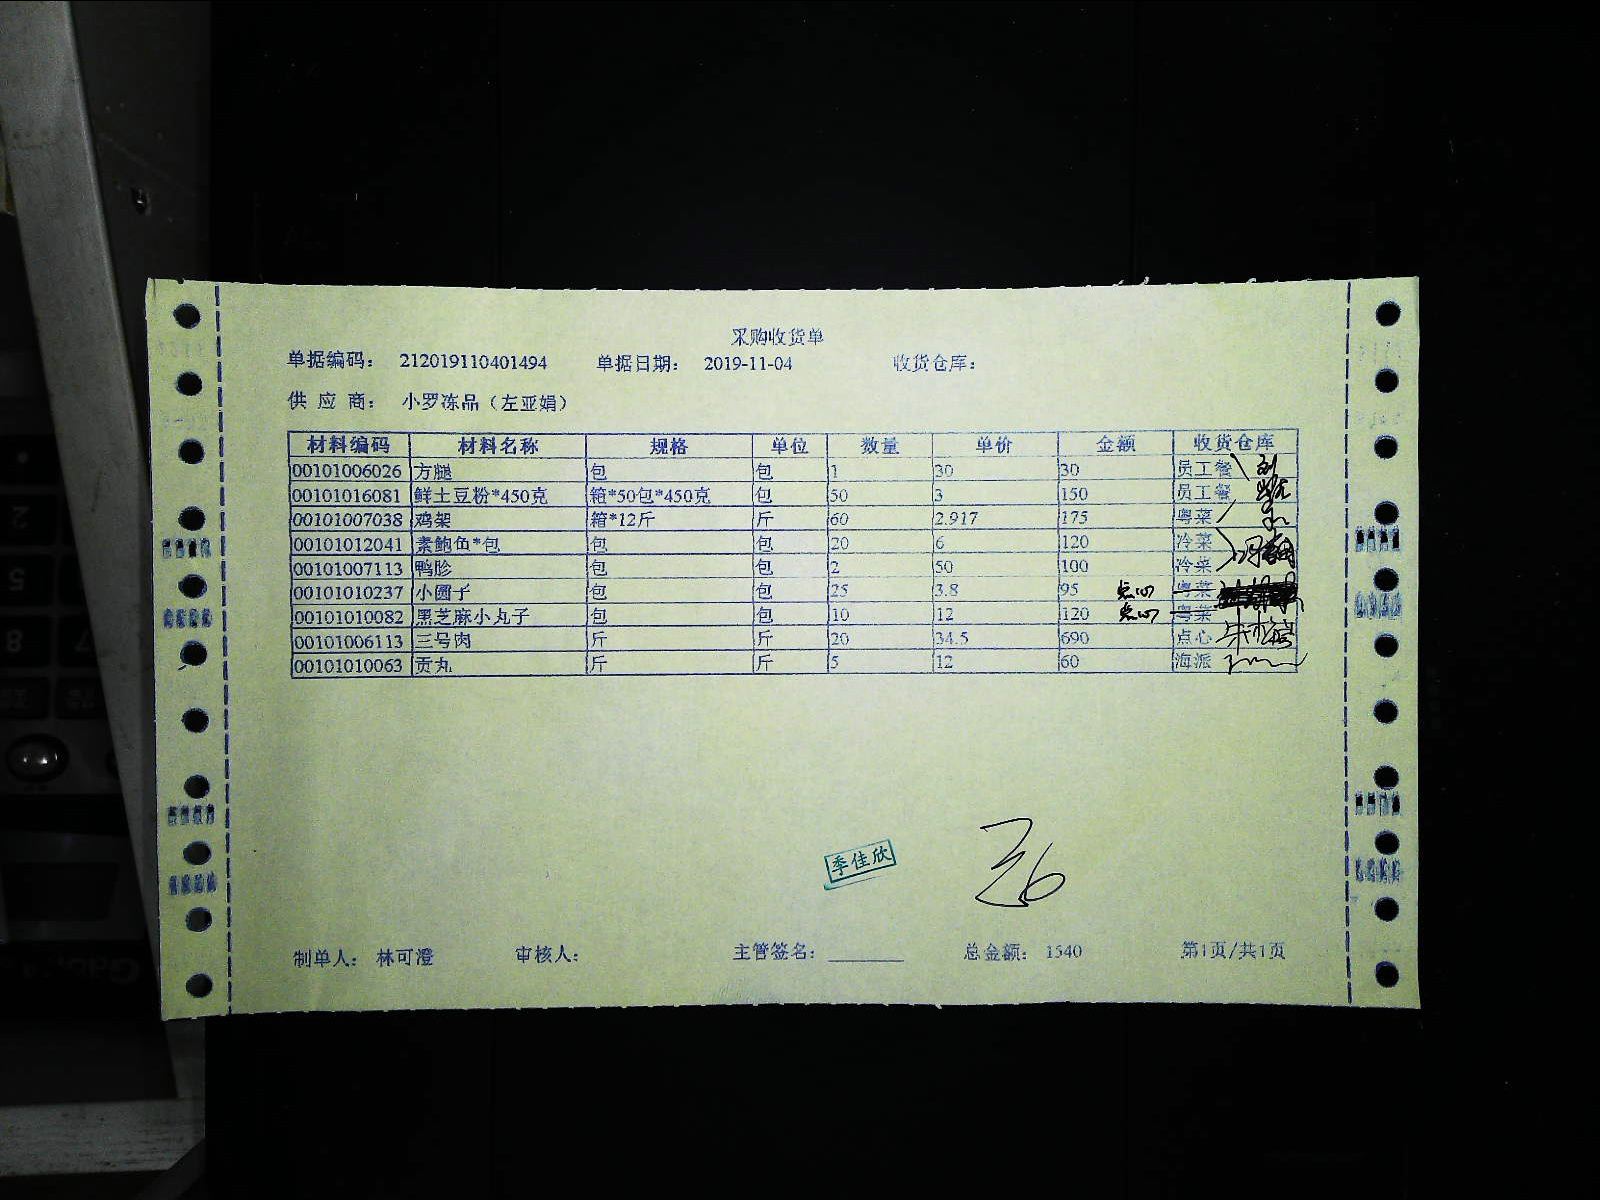 采购收货单
单据编码： 212019110401494 单据日期： 2019-11-04 收货仓库：
供 应 商： 小罗冻品（左亚娟）
材料编码 材料名称 规格 单位 数量 单价 金额 收货仓库
00101006026 方腿 包 包 1 30 30 员工餐
00101016081 鲜土豆粉*450克 箱*50包*450克 包 50 3 150 员工餐
00101007038 鸡架 箱*12斤 斤 60 2.917 175 粤菜
00101012041 素鲍鱼*包 包 包 20 6 120 冷菜
00101007113 鸭胗 包 包 2 50 100 冷菜
00101010237 小圆子 包 包 25 3.8 95 点心 粤菜
00101010082 黑芝麻小丸子 包 包 10 12 120 点心 粤菜
00101006113 三号肉 斤 斤 20 34.5 690 点心
00101010063 贡丸 斤 斤 5 12 60 海派
季佳欣
制单人： 林可澄 审核人： 主管签名： 总金额： 1540 第1页/共1页